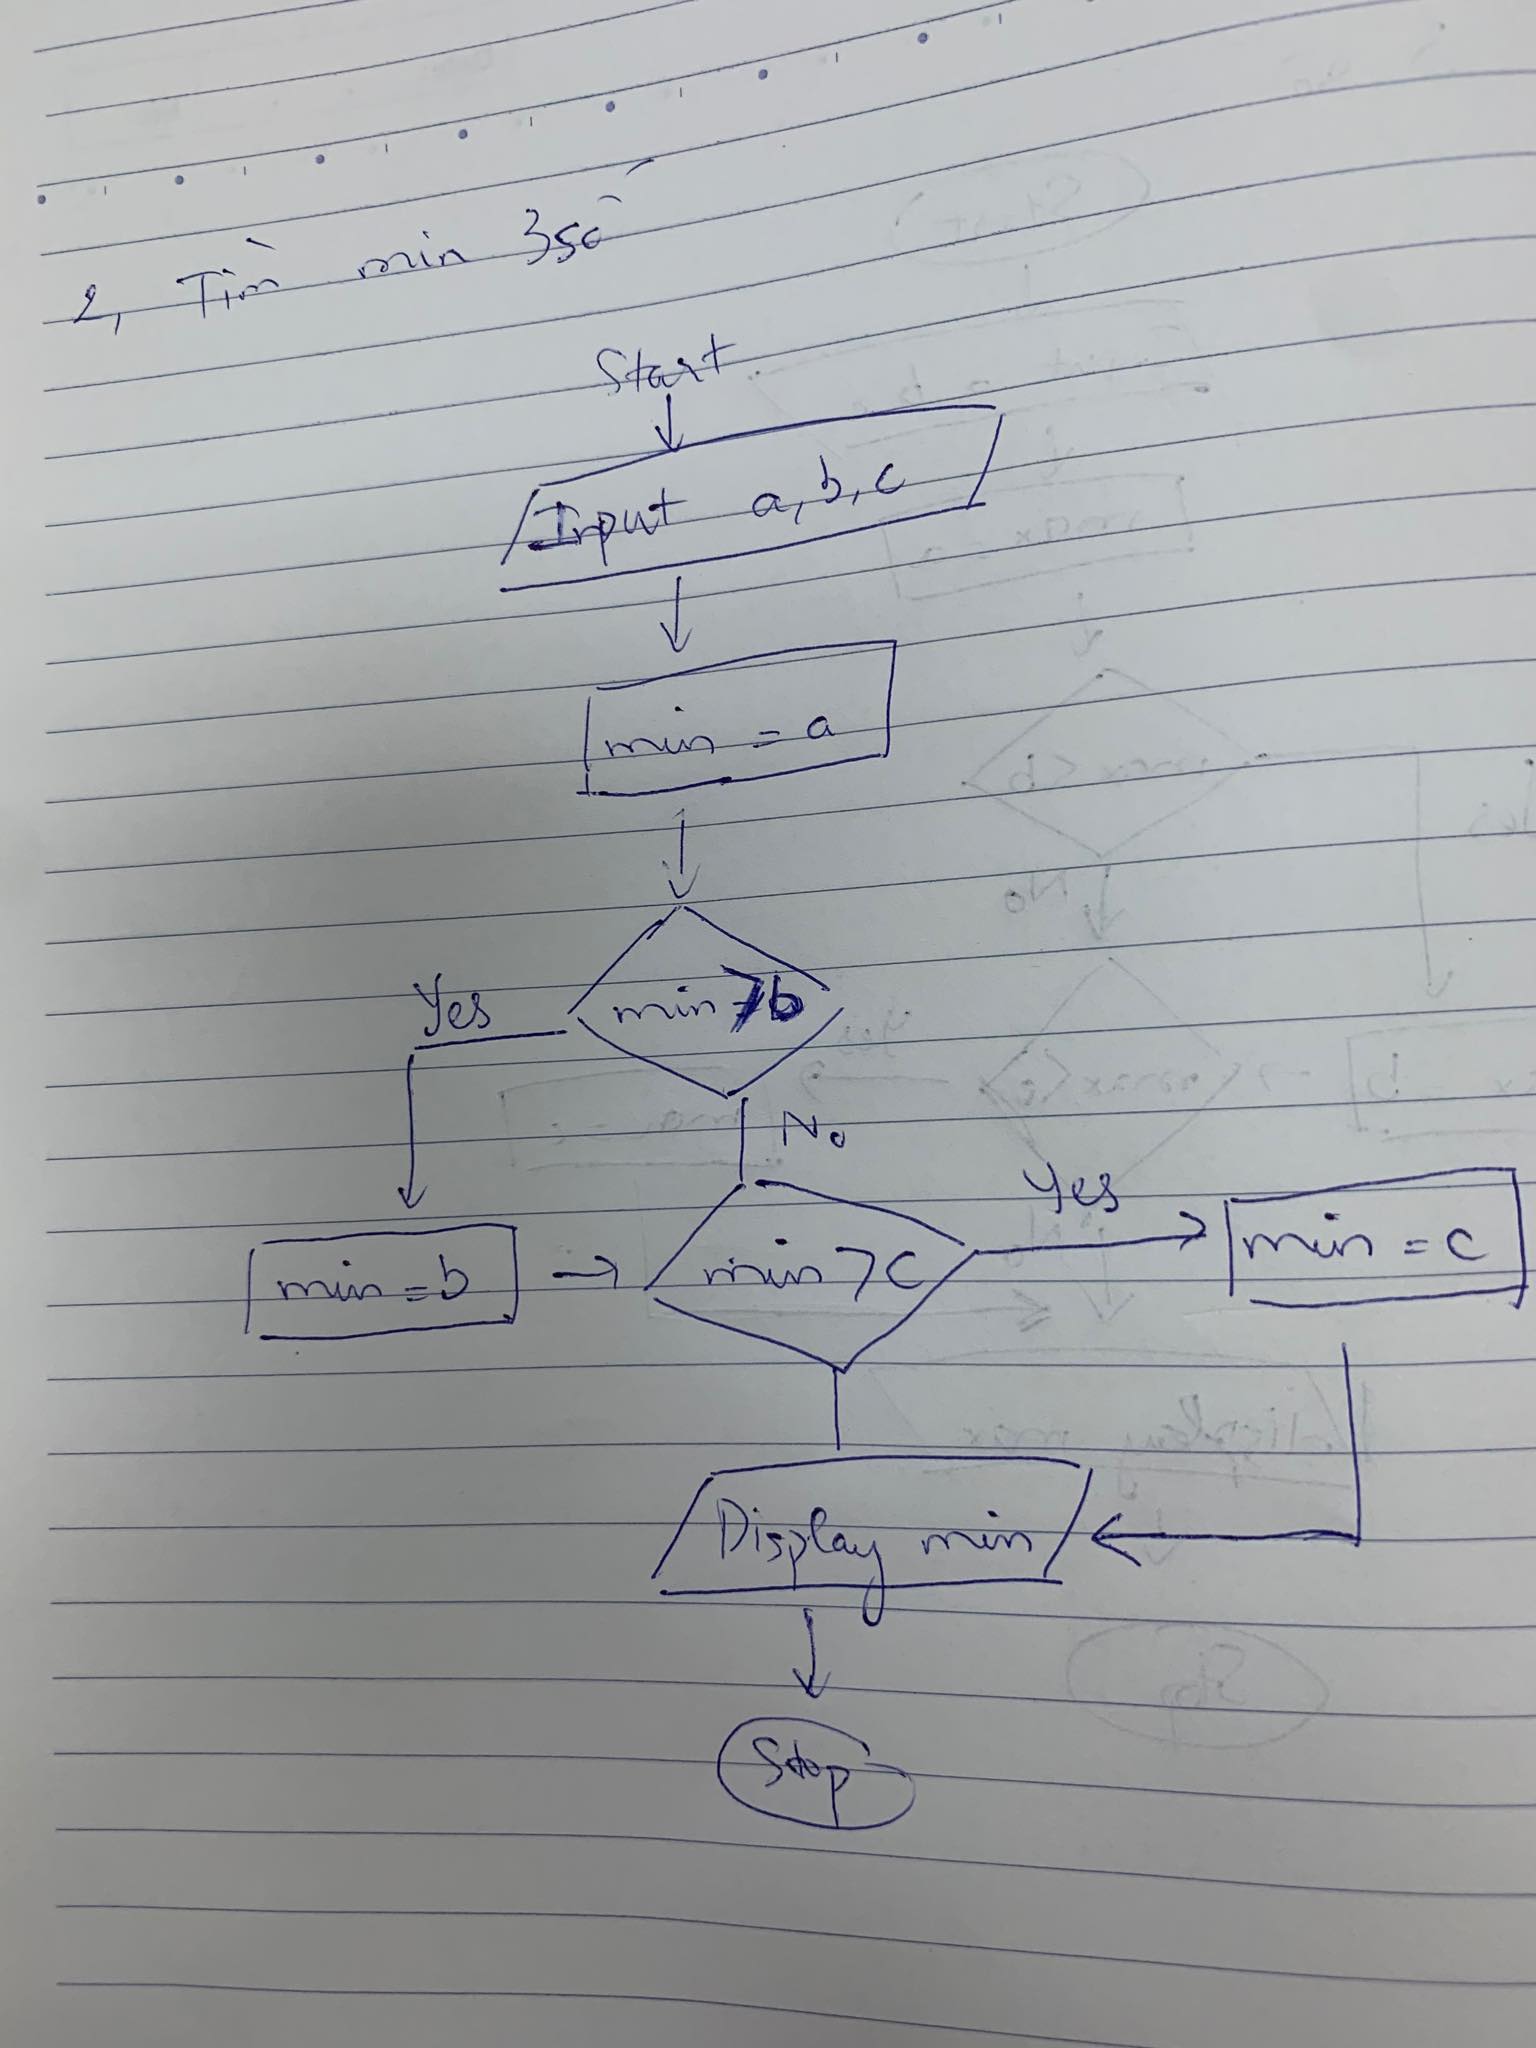 2, Tìm min 3 số
Start
Input a, b, c
min = a
min > b
Yes
No
min = b
min > c
Yes
min = c
Display min
Stop